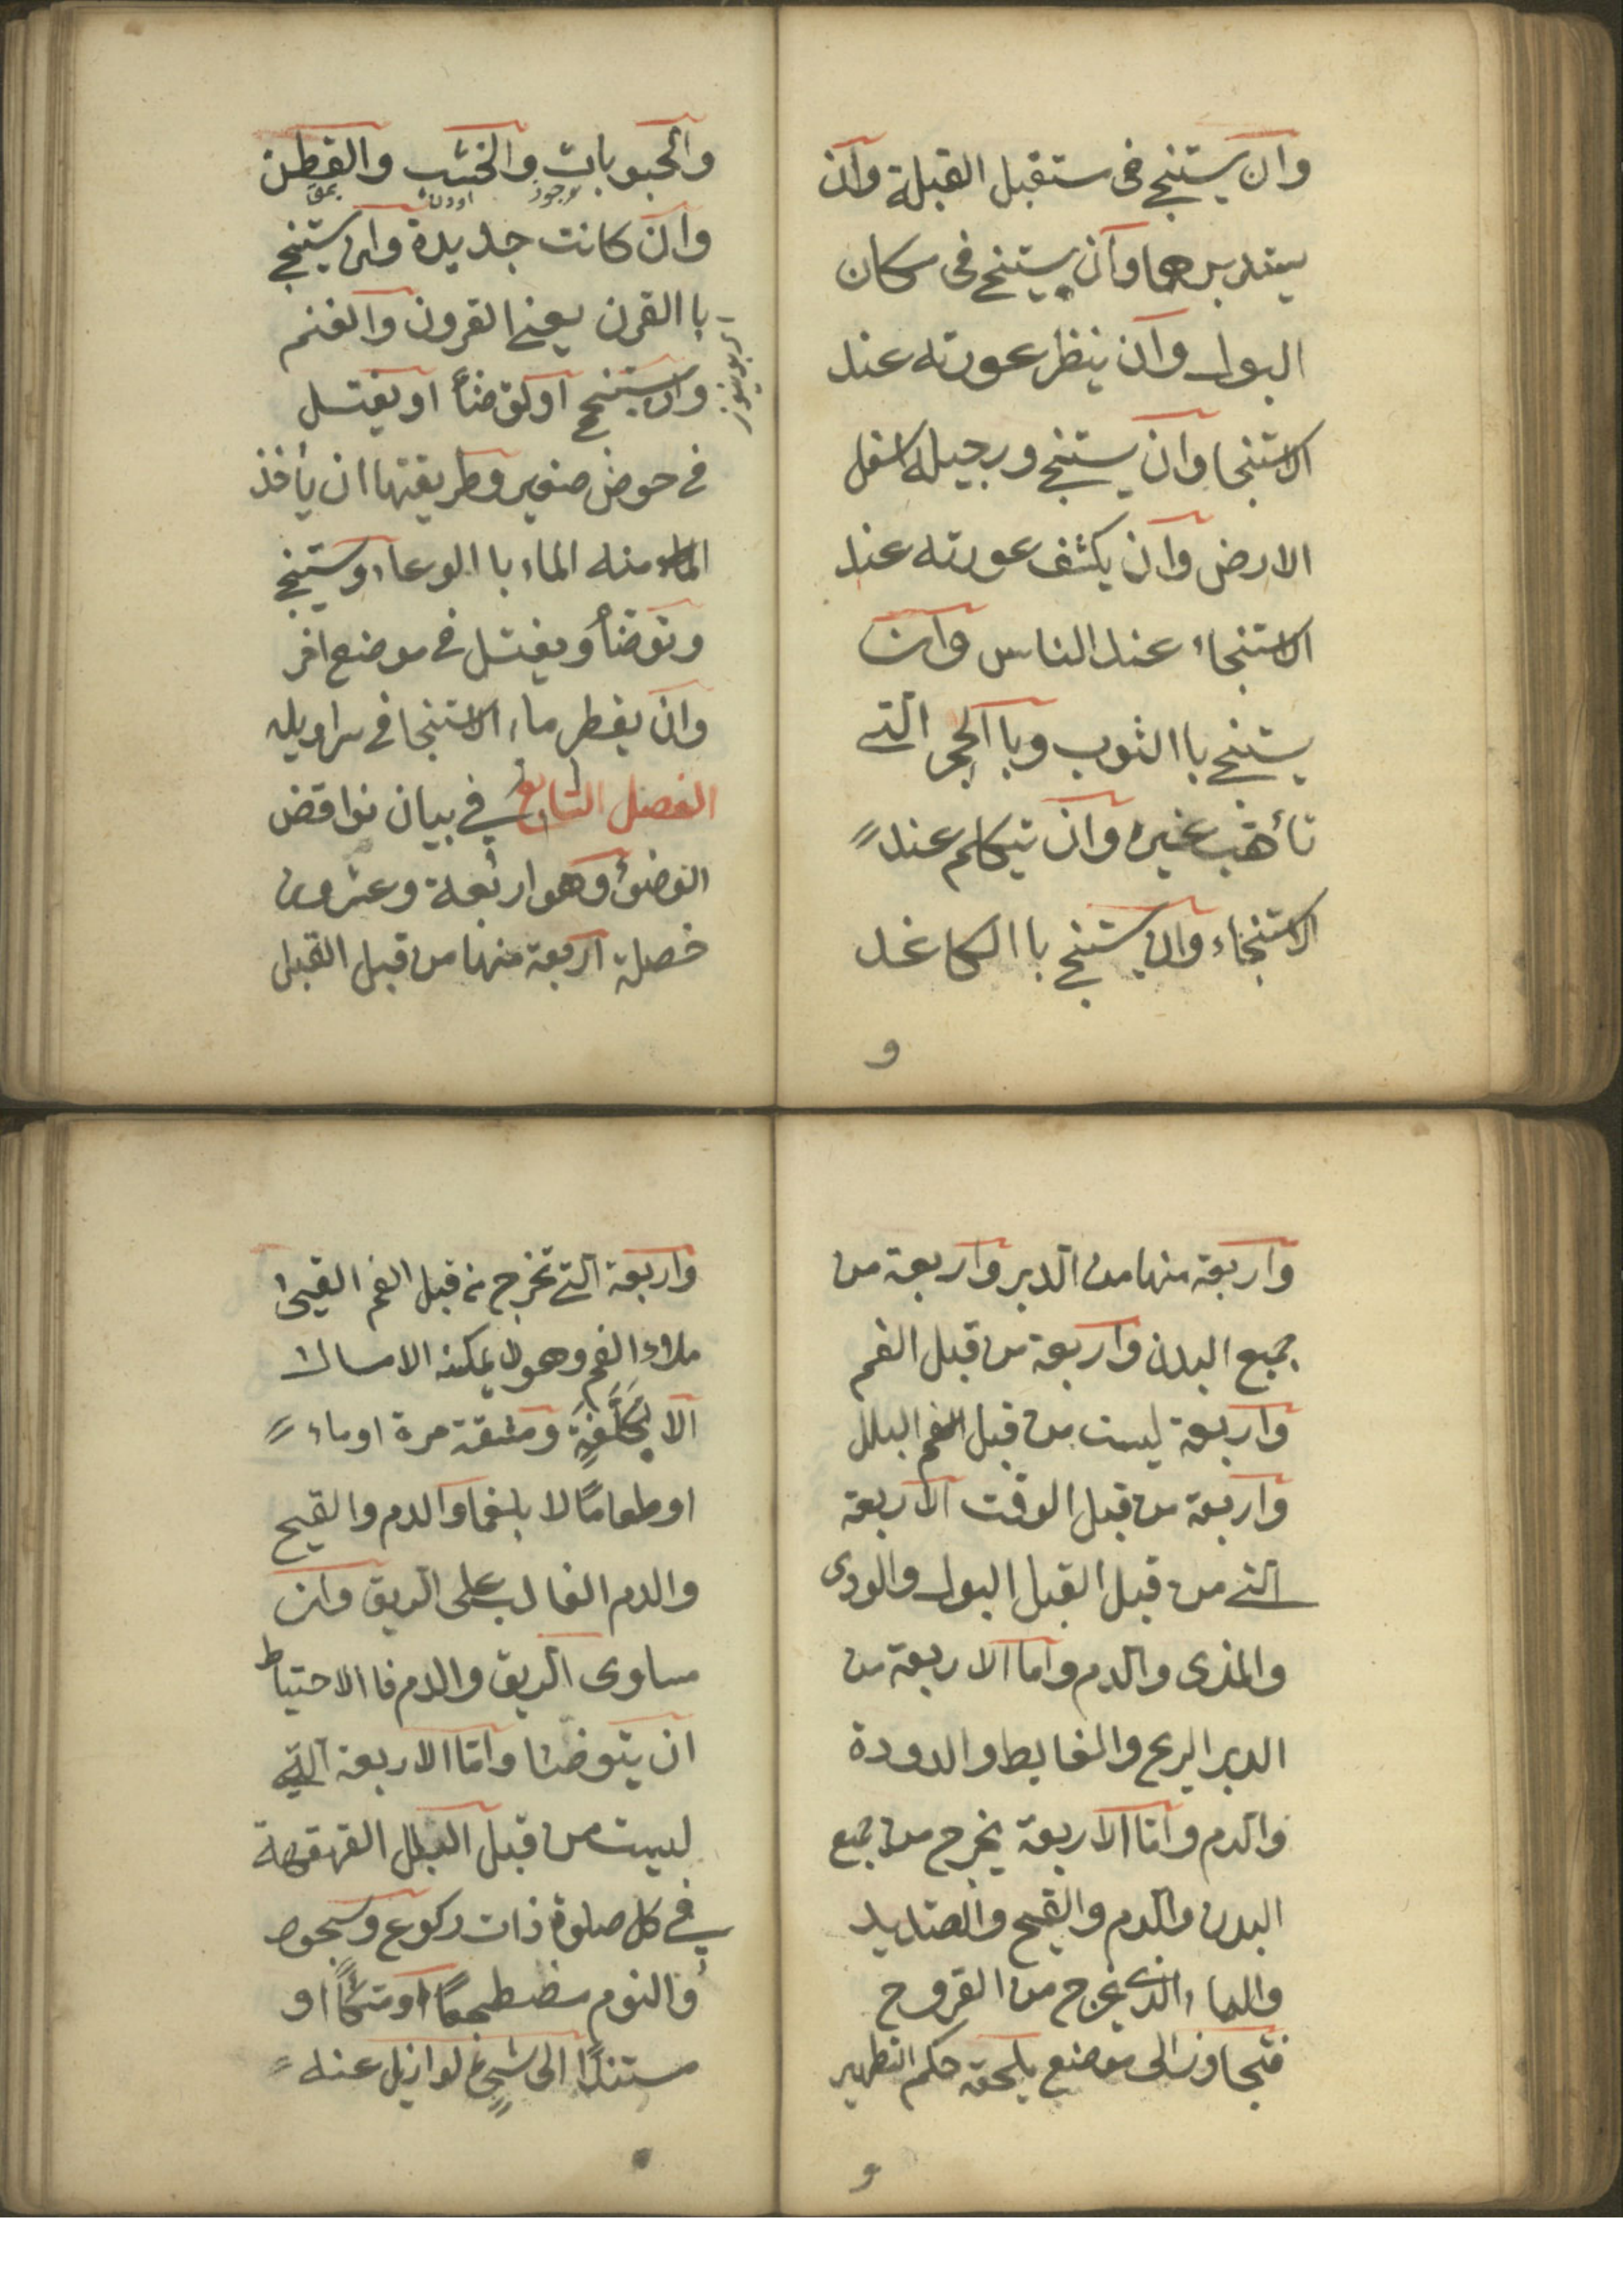 وان يستنجي في ستقبل القبلة وان
يستدبرها وان يستنجي في مكان
البول وان ينظر عورته عند
الاستنجا وان يستنجي ورجيله اسفل
الارض وان يكشف عورته عند
الاستنجاء عند الناس وان
يستنجي با الثوب وبا الحجر التي
تأهب غيره وان يتكلم عند
الاستنجاء وان يستنجي با الكاغد
و
والحبوبات والخشب والقطن
وان كانت جديدة وان يستنجي
با القرن يعني القرون والغنم
وان يستنجي او توضأ او يغتسل
في حوض صغير وطريقتها ان يأخذ
منه الماء با الوعاء ويستنجي
وتوضأ ويغتسل في موضع اخر
وان يقطر ماء الاستنجا في سراويله
الفصل السابع في بيان نواقض
الوضوء وهو اربعة وعشرون
خصلة اربعة منها من قبل القبل
واربعة منها من الدبر واربعة من
جميع البدن واربعة من قبل الفم
واربعة ليست من قبل البلل
واربعة من قبل الوقت الاربعة
التي من قبل القبل البول والودى
والمذى والدم واما الاربعة من
الدبر الريح والغايط والدودة
والدم واما الاربعة يخرج من جميع
البدن والدم والقيح والصديد
والماء الذي يخرج من القروح
فتجاوز الى موضع يلحقه حكم التطهير
و
واربعة التي تخرج من قبل الفم القيئ
ملاء الفم وهو لا يمكنه الامساك
الا بكلفة ومشقة مرة او ماء
او طعاما لا بلغما والدم والقيح
والدم الغالب على الريق وان
مساوى الريق والدم فا الاحتياط
ان يتوضا واما الاربعة التي
ليست من قبل البلل القهقهة
في كل صلوة ذات ركوع وسجود
والنوم مضطجعا او متكئا او
مستندا الى شيئ لو ازيل عنه